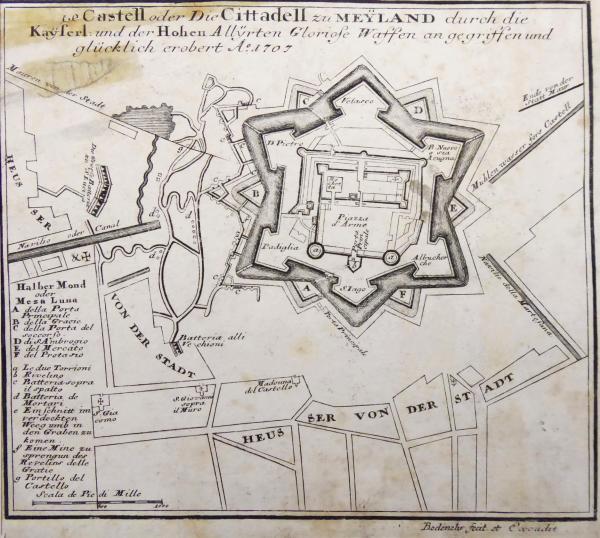 Castell oder Die Cittadell zu MEŸLAND durch die
Kaÿserl: und der Hohen Allÿrten Gloriose Waffen an gegriffen und
glücklich erobert Aº. 1707
Mauren von der Stadt
HEUSSER
Navilio oder Canal
Halber Mond
oder
Meza Luna
A della Porta
Principale
B della Gracie
C della Porta del
soccorso
D di S. Ambrogio
E del Mercato
F del Protasio
a Le due Torrioni
b Rivelino
c Batteria sopra
il spalto
d Batteria de
Mortari
e Ein schnitt im
verdeckten
Weeg umb in
den Graben zu
komen
f Eine Mine zu
sprengun des
Revelins delle
Gratie
g Portillo del
Castello
Scala de Pie di Mille
500
1000
VON DER STADT
Batteria alli
Vechioni
S. Gia
como
S. Giovann
sopra
il Muro
Madonna
del Castello
HEUSSER VON DER STADT
Velasco
D. Pietro
Padiglia
S. Iago
Albucher
che
Piazza
d'Arme
Porta Principale
A
B
C
D
E
F
a
a
Ende von der
Statt Maur
Muhlen wasser fürs Castell
Naviglio della Martesana
Bodenehr fecit et Excudit